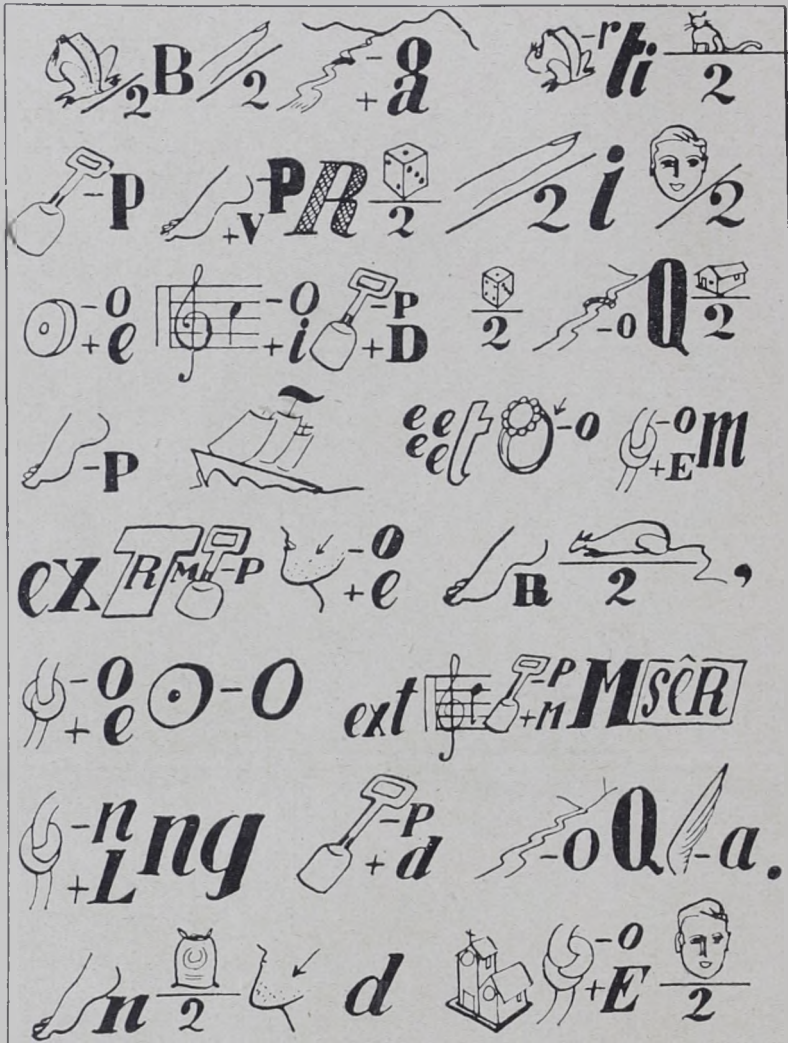 /2 B /2 -o +a -r ti 2
-p +v -P R 2 /2 i /2
-o +e -o +i -P +D 2 -o Q 2
-P e e e e t -o -o +E m
ex T R M -P -o +e R 2 ,
-o +e -o ext -P +M M sêR
-n +L ng -P +d -o Q -a .
n 2 d -o +E 2